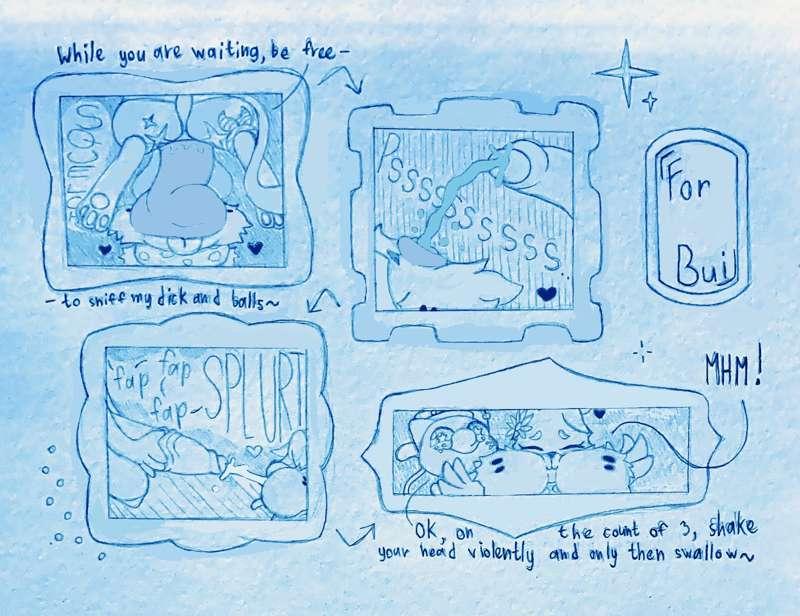 While you are waiting, be free-
SQUELCH
- to sniff my dick and balls~
PSSSSSSSSSSS
For
Bui
fap- fap
fap-
SPLURT
MHM!
OK, on the count of 3, shake
your head violently and only then swallow~